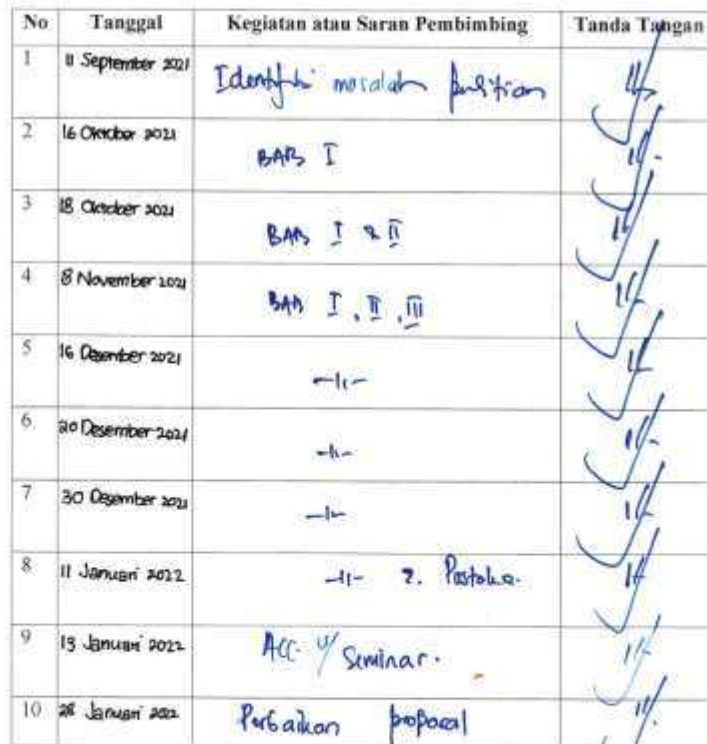 No Tanggal Kegiatan atau Saran Pembimbing Tanda Tangan
1 11 September 2021 Identifikasi masalah penelitian
2 16 Oktober 2021 BAB I
3 18 Oktober 2021 BAB I & II
4 8 November 2021 BAB I, II, III
5 16 Desember 2021 -11-
6 20 Desember 2021 -11-
7 30 Desember 2021 -11-
8 11 Januari 2022 -11- Pustaka.
9 13 Januari 2022 ACC u/ Seminar.
10 28 Januari 2022 Perbaikan proposal